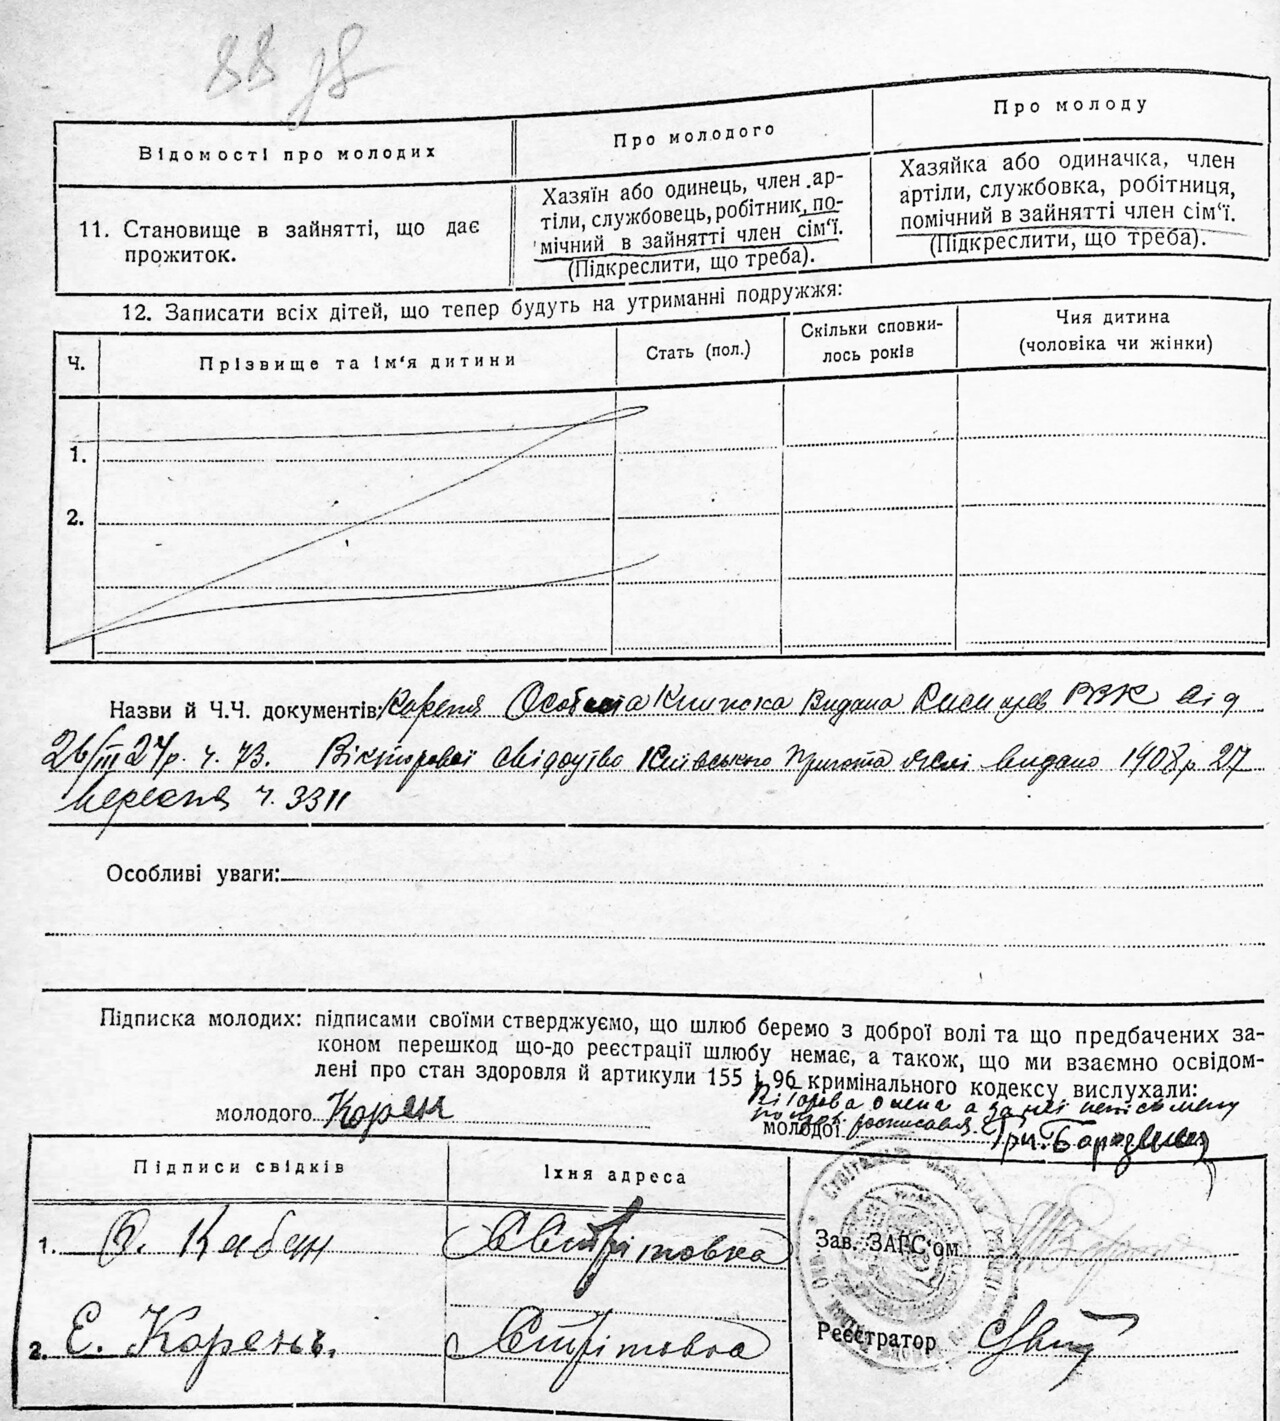 Відомості про молодих
Про молодого
Про молоду
11. Становище в зайнятті, що дає
прожиток.
Хазяїн або одинець, член ар-
тіли, службовець, робітник, по-
мічний в зайнятті член сім‘ї.
(Підкреслити, що треба).
Хазяйка або одиначка, член
артіли, службовка, робітниця,
помічний в зайнятті член сім‘ї.
(Підкреслити, що треба).
12. Записати всіх дітей, що тепер будуть на утриманні подружжя:
Ч.
Прізвище та ім‘я дитини
Стать (пол.)
Скільки сповни-
лось років
Чия дитина
(чоловіка чи жінки)
1.
2.
Назви й Ч.Ч. документів: Кореня Особиста Книжка Видана РВК від
26/III 27р. ч. 73. Вікторової свідоцтво Київського Приюта видано 1908р 27
вересня ч. 3311
Особливі уваги:
Підписка молодих: підписами своїми стверджуємо, що шлюб беремо з доброї волі та що предбачених за-
коном перешкод що-до реєстрації шлюбу немає, а також, що ми взаємно освідом-
лені про стан здоровля й артикули 155 і 96 кримінального кодексу вислухали:
молодого Корен
а за неї неписьмену
молодої росписався Гри.
Підписи свідків
Їхня адреса
1. Кабан
Стрітовка
Зав. ЗАГС‘ом
2. Е. Корень.
Стрітовка
Реєстратор